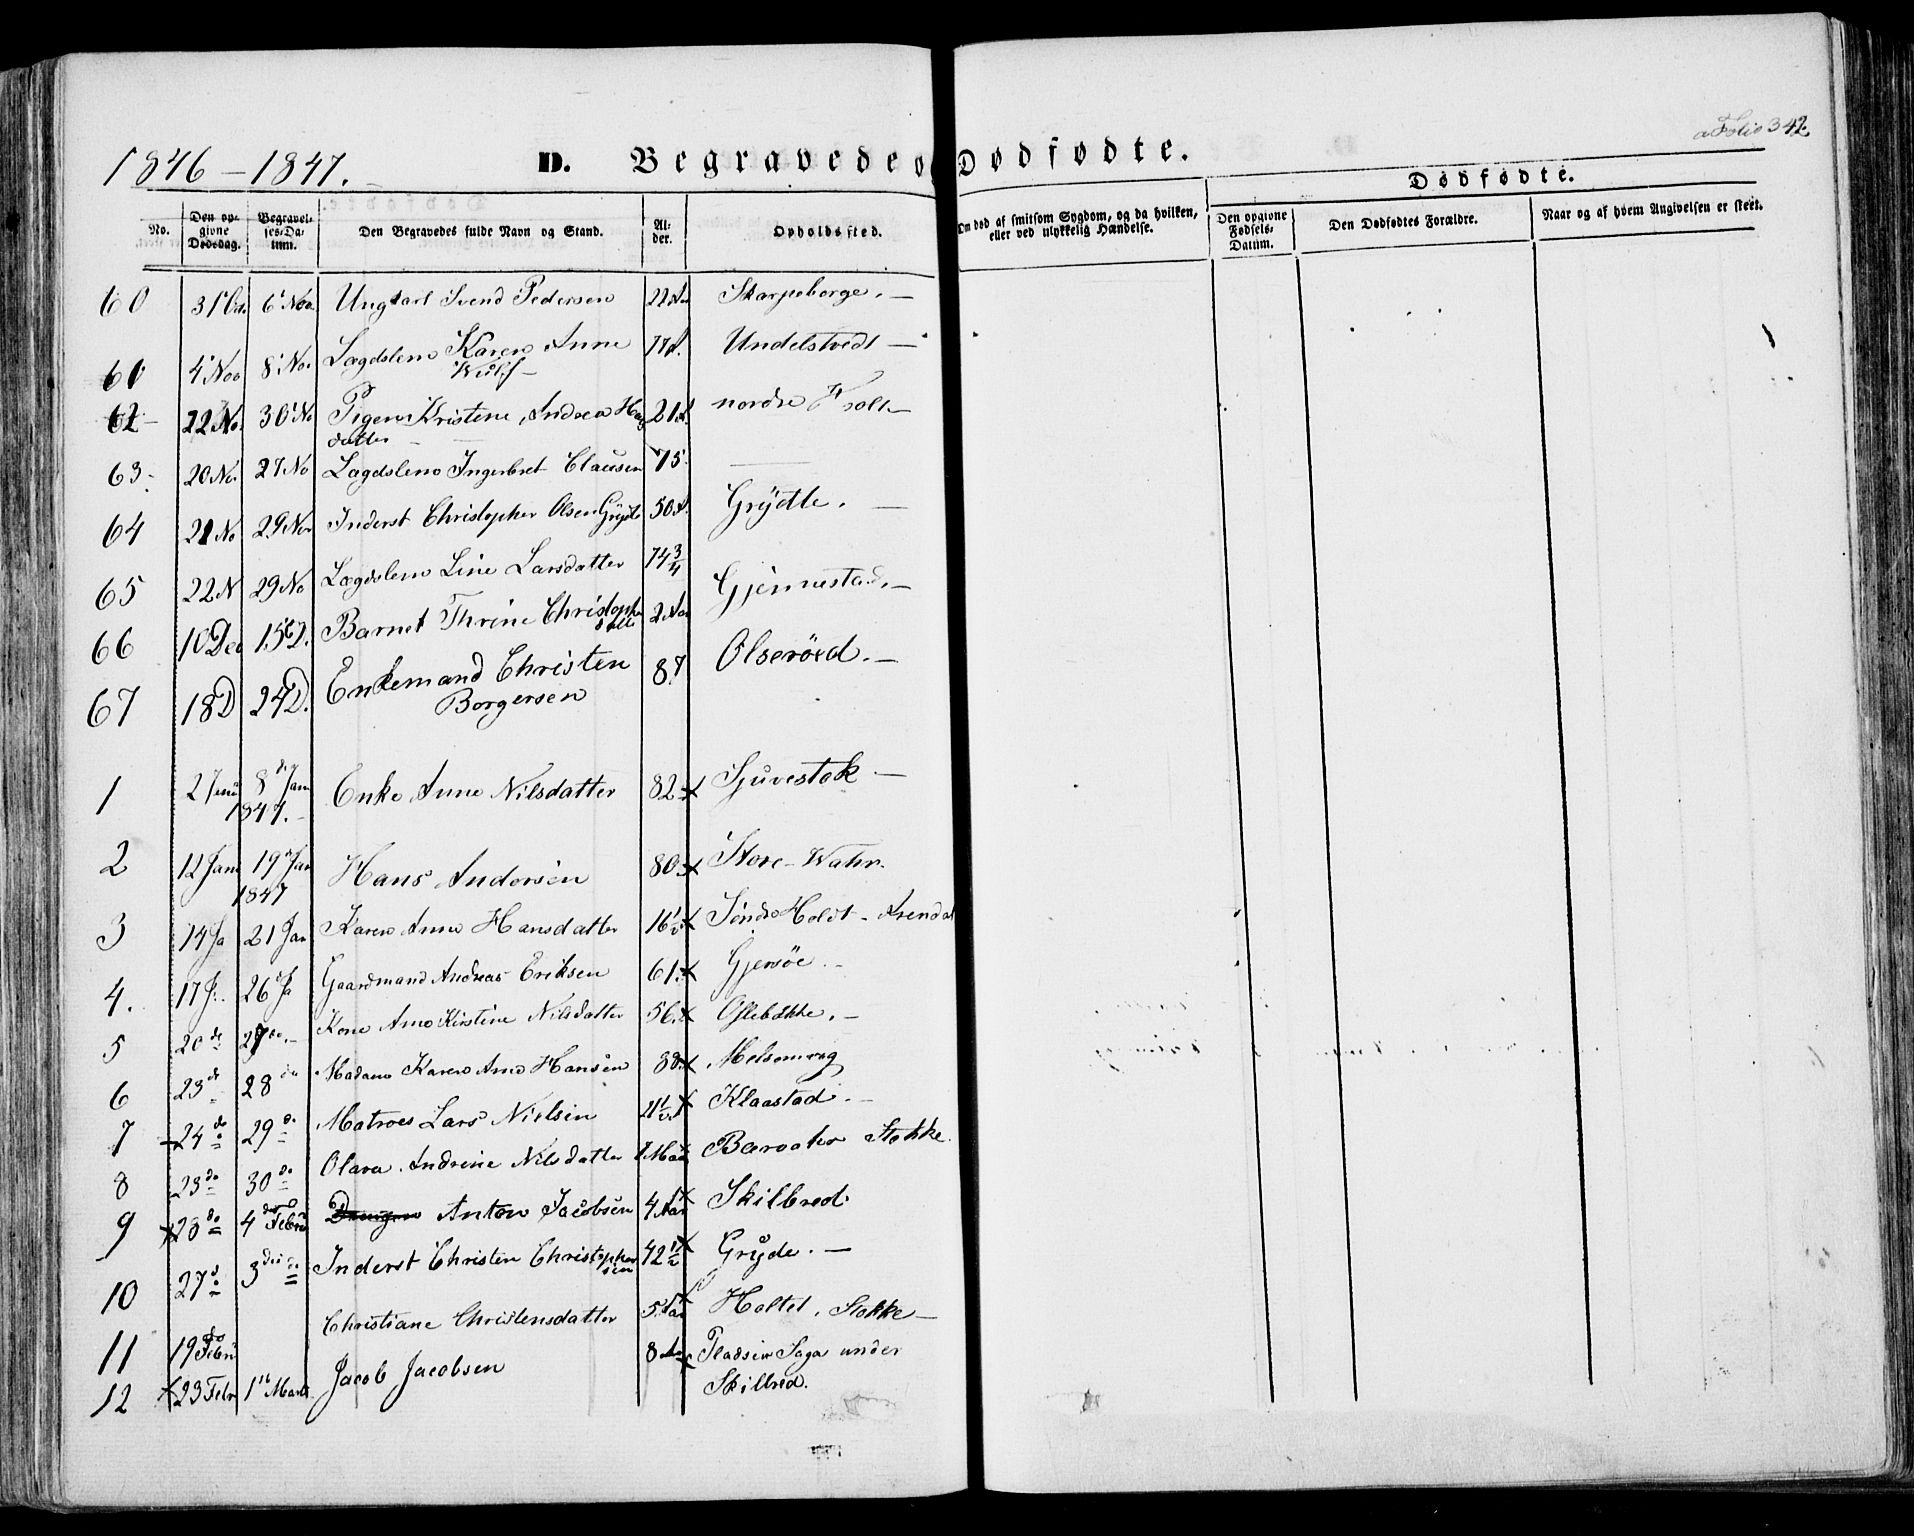 a Folio 342.
1846 – 1847. D. Begravede og Dødfødte.
Dødfødte.
No. Den opgivne Dødsdag. Begravelses-Datum. Den Begravedes fulde Navn og Stand. Alder. Opholdssted. Om død af smitsom Sygdom, og da hvilken, eller ved ulykkelig Hændelse. Den opgivne Fødsels-Datum. Den Dødfødtes Forældre. Naar og af hvem Angivelsen er skeet.
60 31 6 Nov. Ungkarl Svend Pedersen 22 Skarpeborge. –
61 4 Nov 8 Nov. Lægdslem Karen Anne 77 Undelstvedt –
62 22 No. 30 No Pigen Kristine Andrea 21 nordre
datter
63 20 No. 27 No Lægdslem Ingerbret Clausen 75
64 21 No 29 Nov Inderst Christopher Olsen Grydte 50 Grydte. –
65 22 N 29 No Lægdslem Line Larsdatter 74 3/4 Gjennestad. –
66 10 Dec 15 D. Barnet Thrine Christopher 2 Aar
datter
67 18 D 24 D. Enkemand Christen 87 Olseröed. –
Borgersen
1 2 Janu 8 Janu Enke Anne Nilsdatter 82 Sjuvestok –
1847. –
2 12 Janu 19 Jan Hans Andersen 80 Store-
1847
3 14 Ja 21 Jan Karen Anne Hansdatter 16 1/2 Søndre Holdt –
4. 17 J. 26 Ja Gaardmand Andreas Eriksen 61. Gjersöe. –
5 20 do 27 do. – Kone Anne Kirstine Nilsdatter 56 Oflebakke. –
6 23 do 28 do Madam Karen Anne Hansen 38 Melsomvig
7 24 do 29 do Matroes Lars Nielsen 21 1/2 Klaastad. –
8 23 do 30 do Olava Andrine Nilsdatter Stokke.
9 28 do 4 Febru Anton Jacobsen 4 Aar Skilbred.
10 27 do 3 do Inderst Christen Christopher 42 1/2 Gryde. –
sen
11 19 Febru Christiane Christensdatter 5 Aar Holtet. Stokke –
12 23 Febr 1 Marts Jacob Jacobsen 8 Pladsen Saga under
Skilbred.